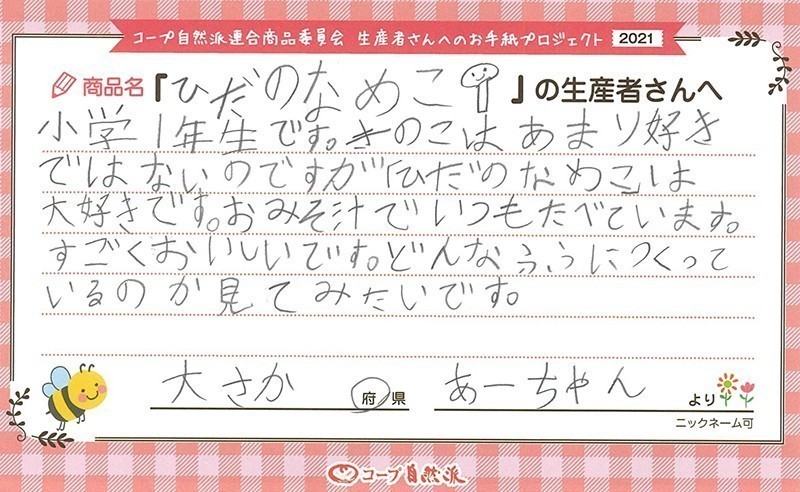 コープ自然派連合商品委員会 生産者さんへのお手紙プロジェクト 2021
商品名「ひだのなめこ」の生産者さんへ
小学1年生です。きのこはあまり好き
ではないのですが「ひだのなめこ」は
大好きです。おみそ汁でいつもたべています。
すごくおいしいです。どんなふうにつくって
いるのか見てみたいです。
大さか 府/県 あーちゃん より
ニックネーム可
コープ自然派